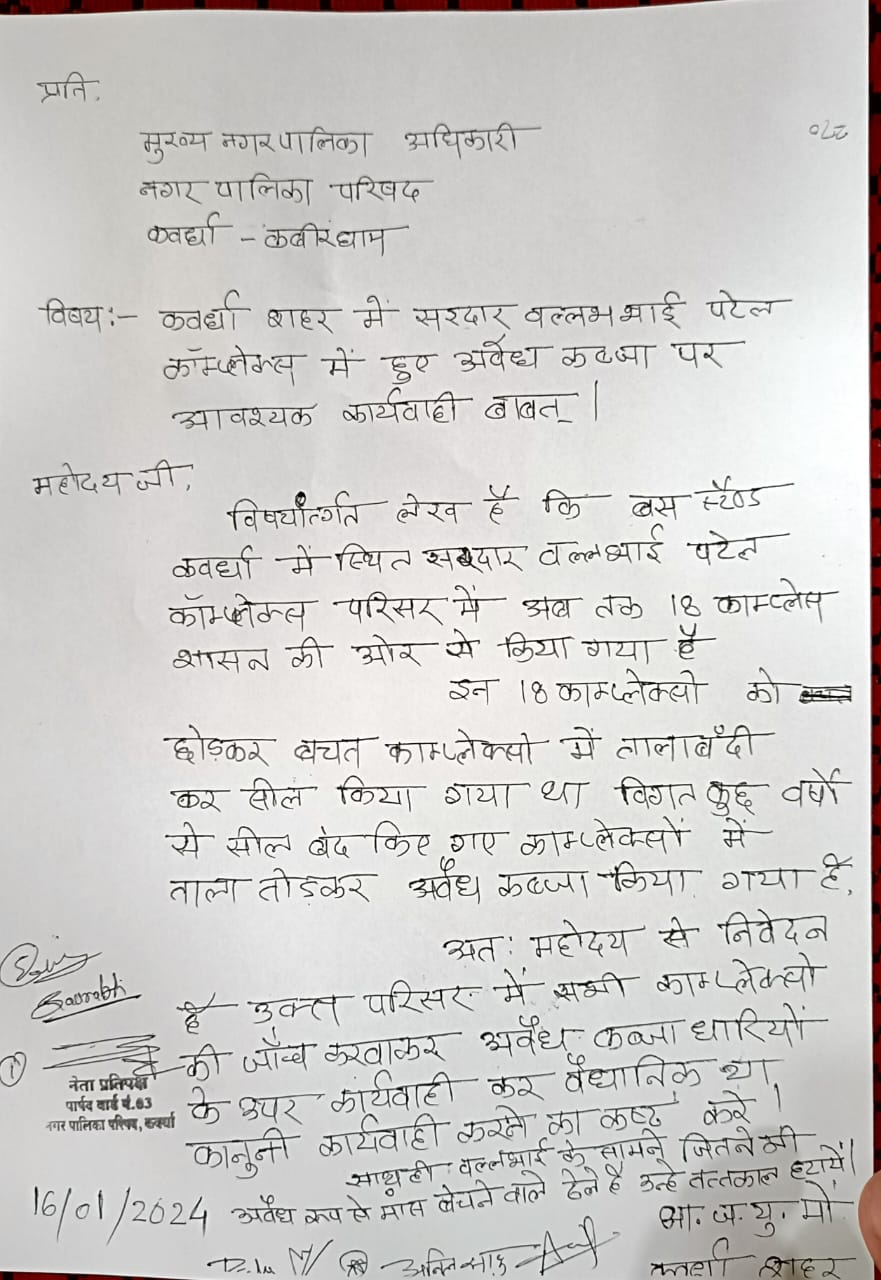 प्रति,
270
मुख्य नगरपालिका अधिकारी
नगर पालिका परिषद
कवर्धा - कबीरधाम
विषय:- कवर्धा शहर में सरदार वल्लभभाई पटेल
कॉम्प्लेक्स में हुए अवैध कब्जा पर
आवश्यक कार्यवाही बाबत् |
महोदय जी,
विषयांर्तगत लेख है कि बस स्टैण्ड
कवर्धा में स्थित सरदार वल्लभाई पटेल
कॉम्प्लेक्स परिसर में अब तक 18 काम्प्लेस
शासन की ओर से किया गया है
इन 18 काम्प्लेक्सो को
छोड़कर बचत काम्प्लेक्सो में तालाबँदी
कर सील किया गया था विगत कुछ वर्षो
से सील बंद किए गए काम्प्लेक्सों में
ताला तोड़कर अवैध कब्जा किया गया है,
अत: महोदय से निवेदन
है उक्त परिसर में सभी काम्प्लेक्सो
की जाँच करवाकर अवैध कब्जा धारियों
के उपर कार्यवाही कर वैधानिक या
कानुनी कार्यवाही करने का कष्ट करे |
साथ ही वल्लभाई के सामने जितने भी
अवैध रूप से मांस बेचने वाले ठेले है उन्हे तत्तकाल हटायें |
Saurabh
नेता प्रतिपक्ष
पार्षद वार्ड नं.03
नगर पालिका परिषद, कवर्धा
16/01/2024
भा. ज. यु. मो.
कवर्धा शहर
अनिल साहू